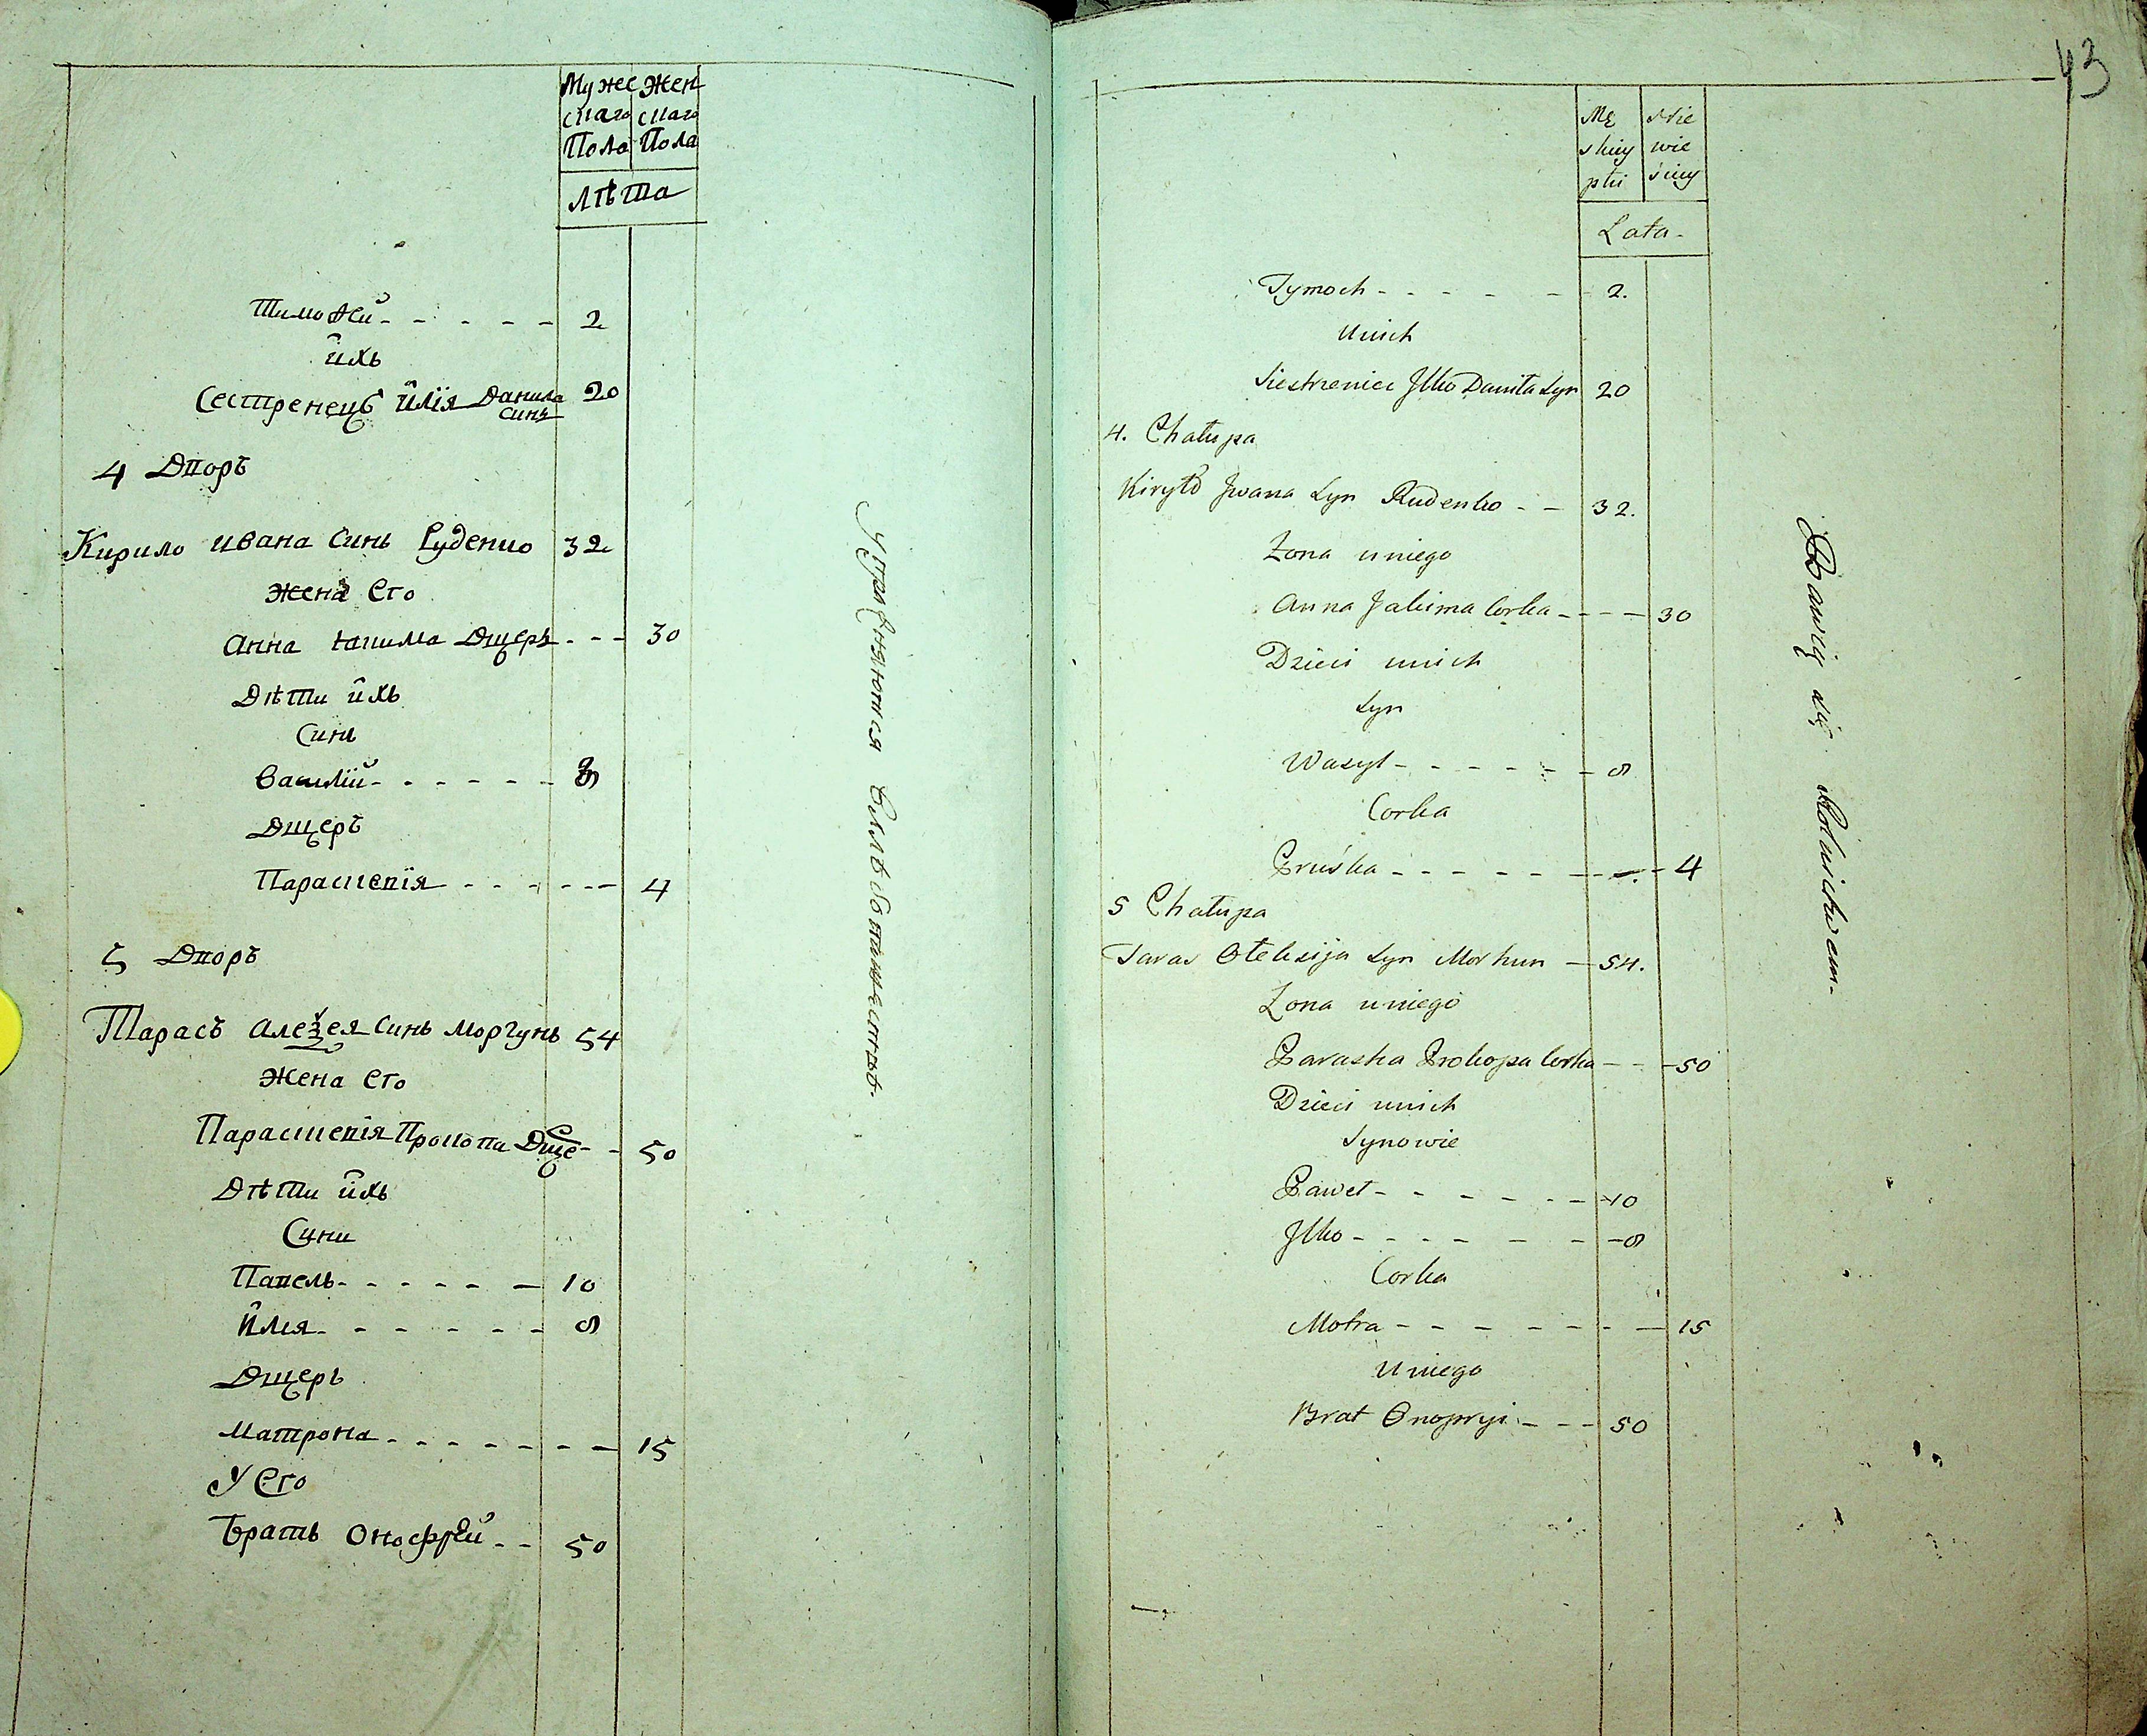 Муже Жен
скаго скаго
Пола Пола
лѣта
Тимофей 2
ихъ
Сестренецъ Илія Данила синъ 20
4 Дворъ
Кирило Ивана Синъ Руденко 32
жена Его
Анна Якима Дщеръ 30
Дѣти ихъ
Синъ
Василій 8
Дщеръ
Параскевія 4
5 Дворъ
Тарасъ Алеѯея Синъ Моргунъ 54
Жена Его
Параскевія Прокопа Дще 50
Дѣти ихъ
Сини
Павелъ 10
Илія 8
Дщеръ
Матрона 15
У Его
Братъ Онофрей 50
Упражняются
43
Mę Nie
skiey wie
płci ściey
Lata
Tymoch 2.
Unich
Siestrzeniec Jlko Daniła Syn 20
4. Chałupa
Kiryło Jwana Syn Rudenko 32.
Żona uniego
Anna Jakima Corka 30
Dzieci unich
Syn
Wasyl 8
Corka
Pruśka 4
5 Chałupa
Taras Ołeksija Syn Morhun 54.
Żona uniego
Paraska Prokopa Corka 50
Dzieci unich
Synowie
Paweł 10
Jlko 8
Corka
Motra 15
Uniego
Brat Onopryi 50
Bawią się Rolnictwem